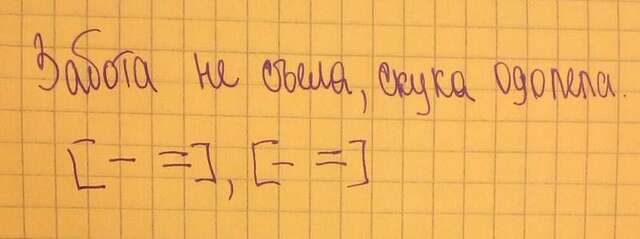 Забота не съела, скука одолела.
[– =], [– =]